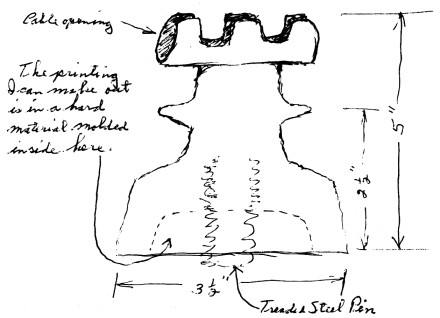 Cable opening
The printing
I can make out
is in a hard
material molded
inside here.
5"
2 1/2"
3 1/2"
Treaded Steel Pin